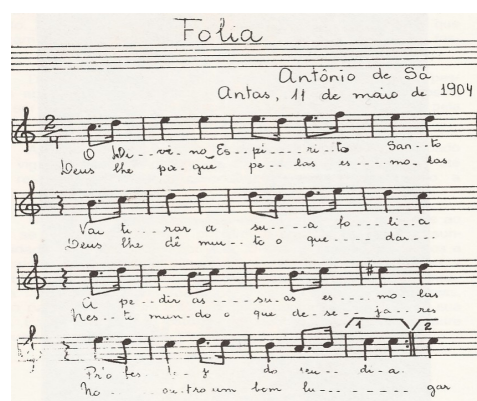 Folia
Antônio de Sá
Antas, 11 de maio de 1904
2
4
O Di--vi-no Es--pí---ri--to San--to
Deus lhe pa-gue pe--las es---mo-las
Vai ti--rar a su---a fo--li-a
Deus lhe dê mui--to o que---dar---
A pe--dir as---su-as es----mo-las
Nes--te mun-do o que de-se--ja--res
1 2
do seu--di-a
No---ou-tro um bom lu-----gar